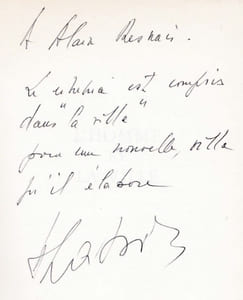 A Alain Resnais.
Le est compris
dans "la ville"
pour une nouvelle, ville
qu'il elabore